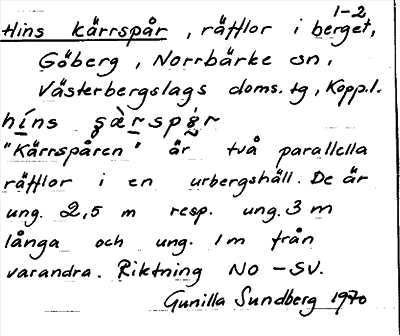 1-2
Hins kärrspår, räfflor i berget,
Göberg, Norrbärke sn,
Västerbergslags doms. tg, Kopp.l.
híns ʂàrspår
"Kärrspåren" är två parallella
räfflor i en urbergshäll. De är
ung. 2,5 m resp. ung. 3 m
långa och ung. 1m från
varandra. Riktning NO – SV.
Gunilla Sundberg 1970